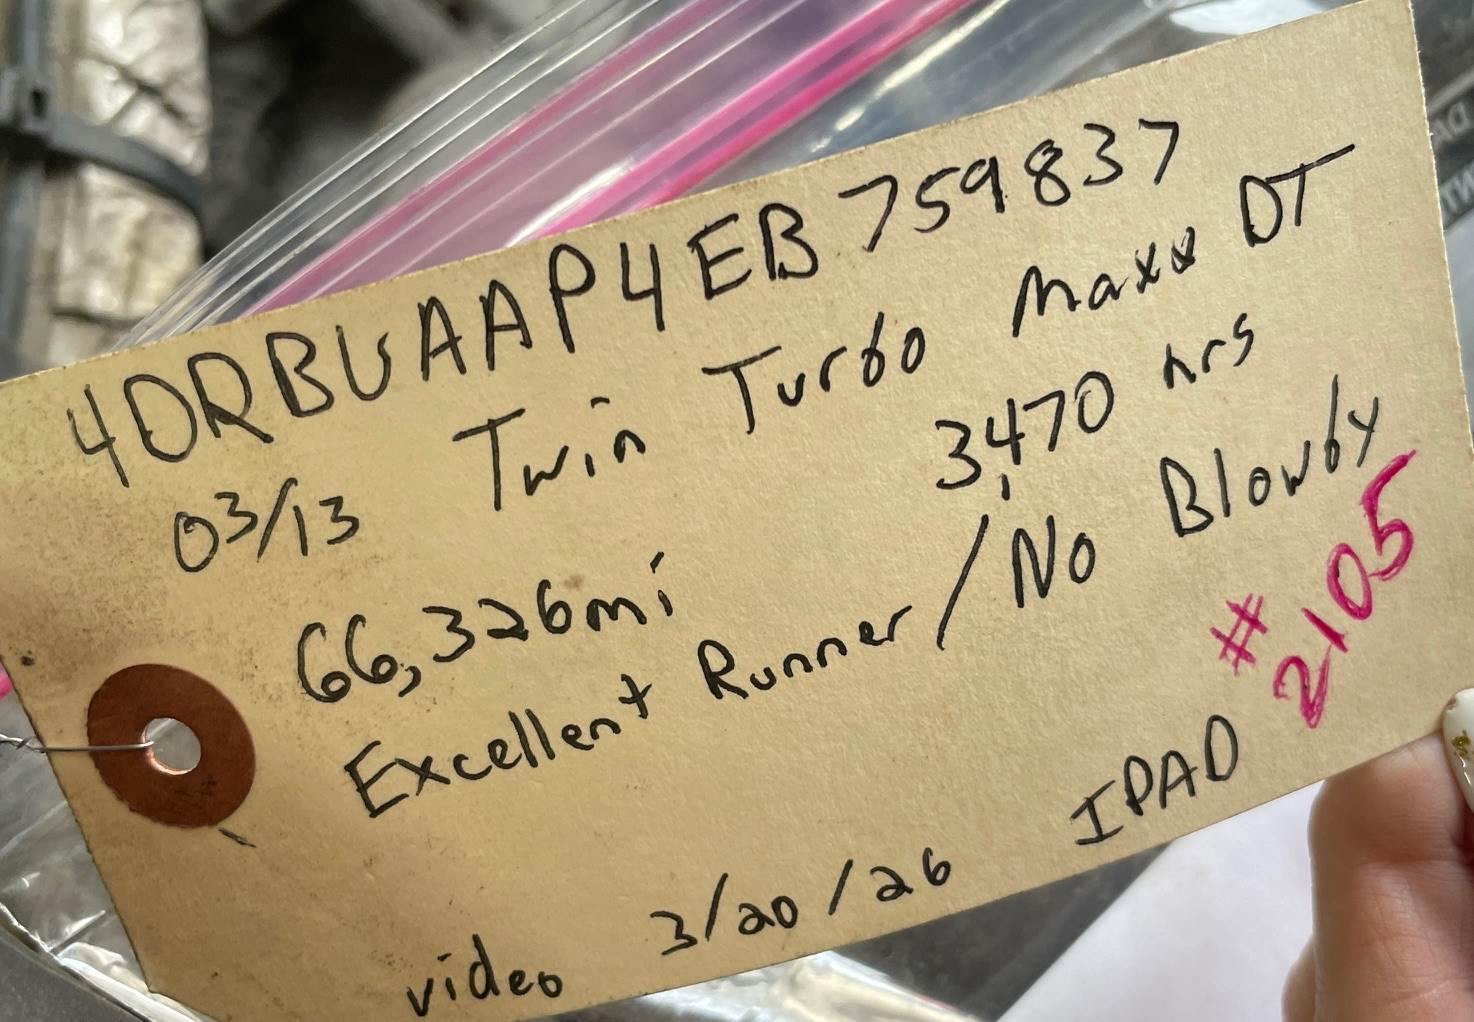 4DRBUAAP4EB759837
03/13 Twin Turbo Maxx DT
66,326mi 3,470 hrs
Excellent Runner/No Blowby
#2105
video 3/20/26 IPAD